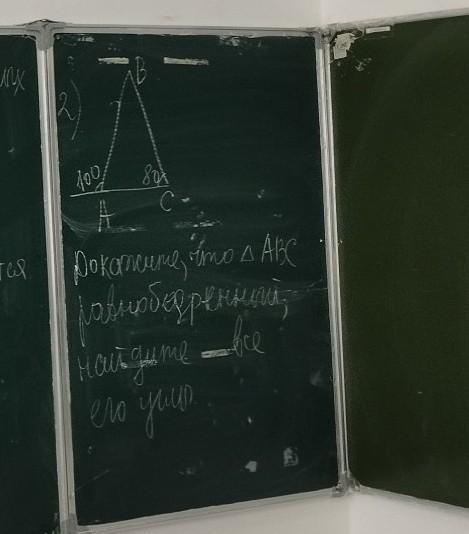 ых
2)
B
100
80
A
C
Докажите, что △ ABC
равнобедренный,
найдите все
его углы.
тся